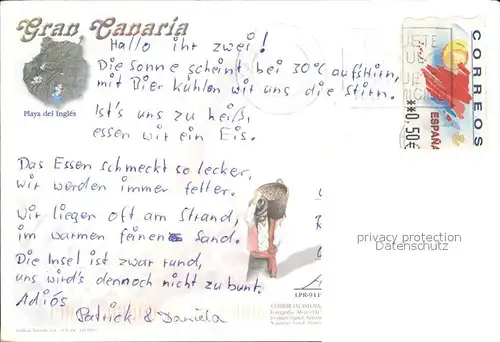 Gran Canaria
Playa del Inglés
Hallo ihr zwei!
Die Sonne scheint bei 30°C aufs Hirn,
mit Bier kühlen wir uns die Stirn.
Ist's uns zu heiß,
essen wir ein Eis.
Das Essen schmeckt so lecker,
wir werden immer fetter.
Wir liegen oft am Strand,
im warmen feinen Sand.
Die Insel ist zwar rund,
uns wird's dennoch nicht zu bunt.
Adiós
Patrick & Daniela
CORREOS
ESPAÑA
**0,50€
privacy protection
Datenschutz